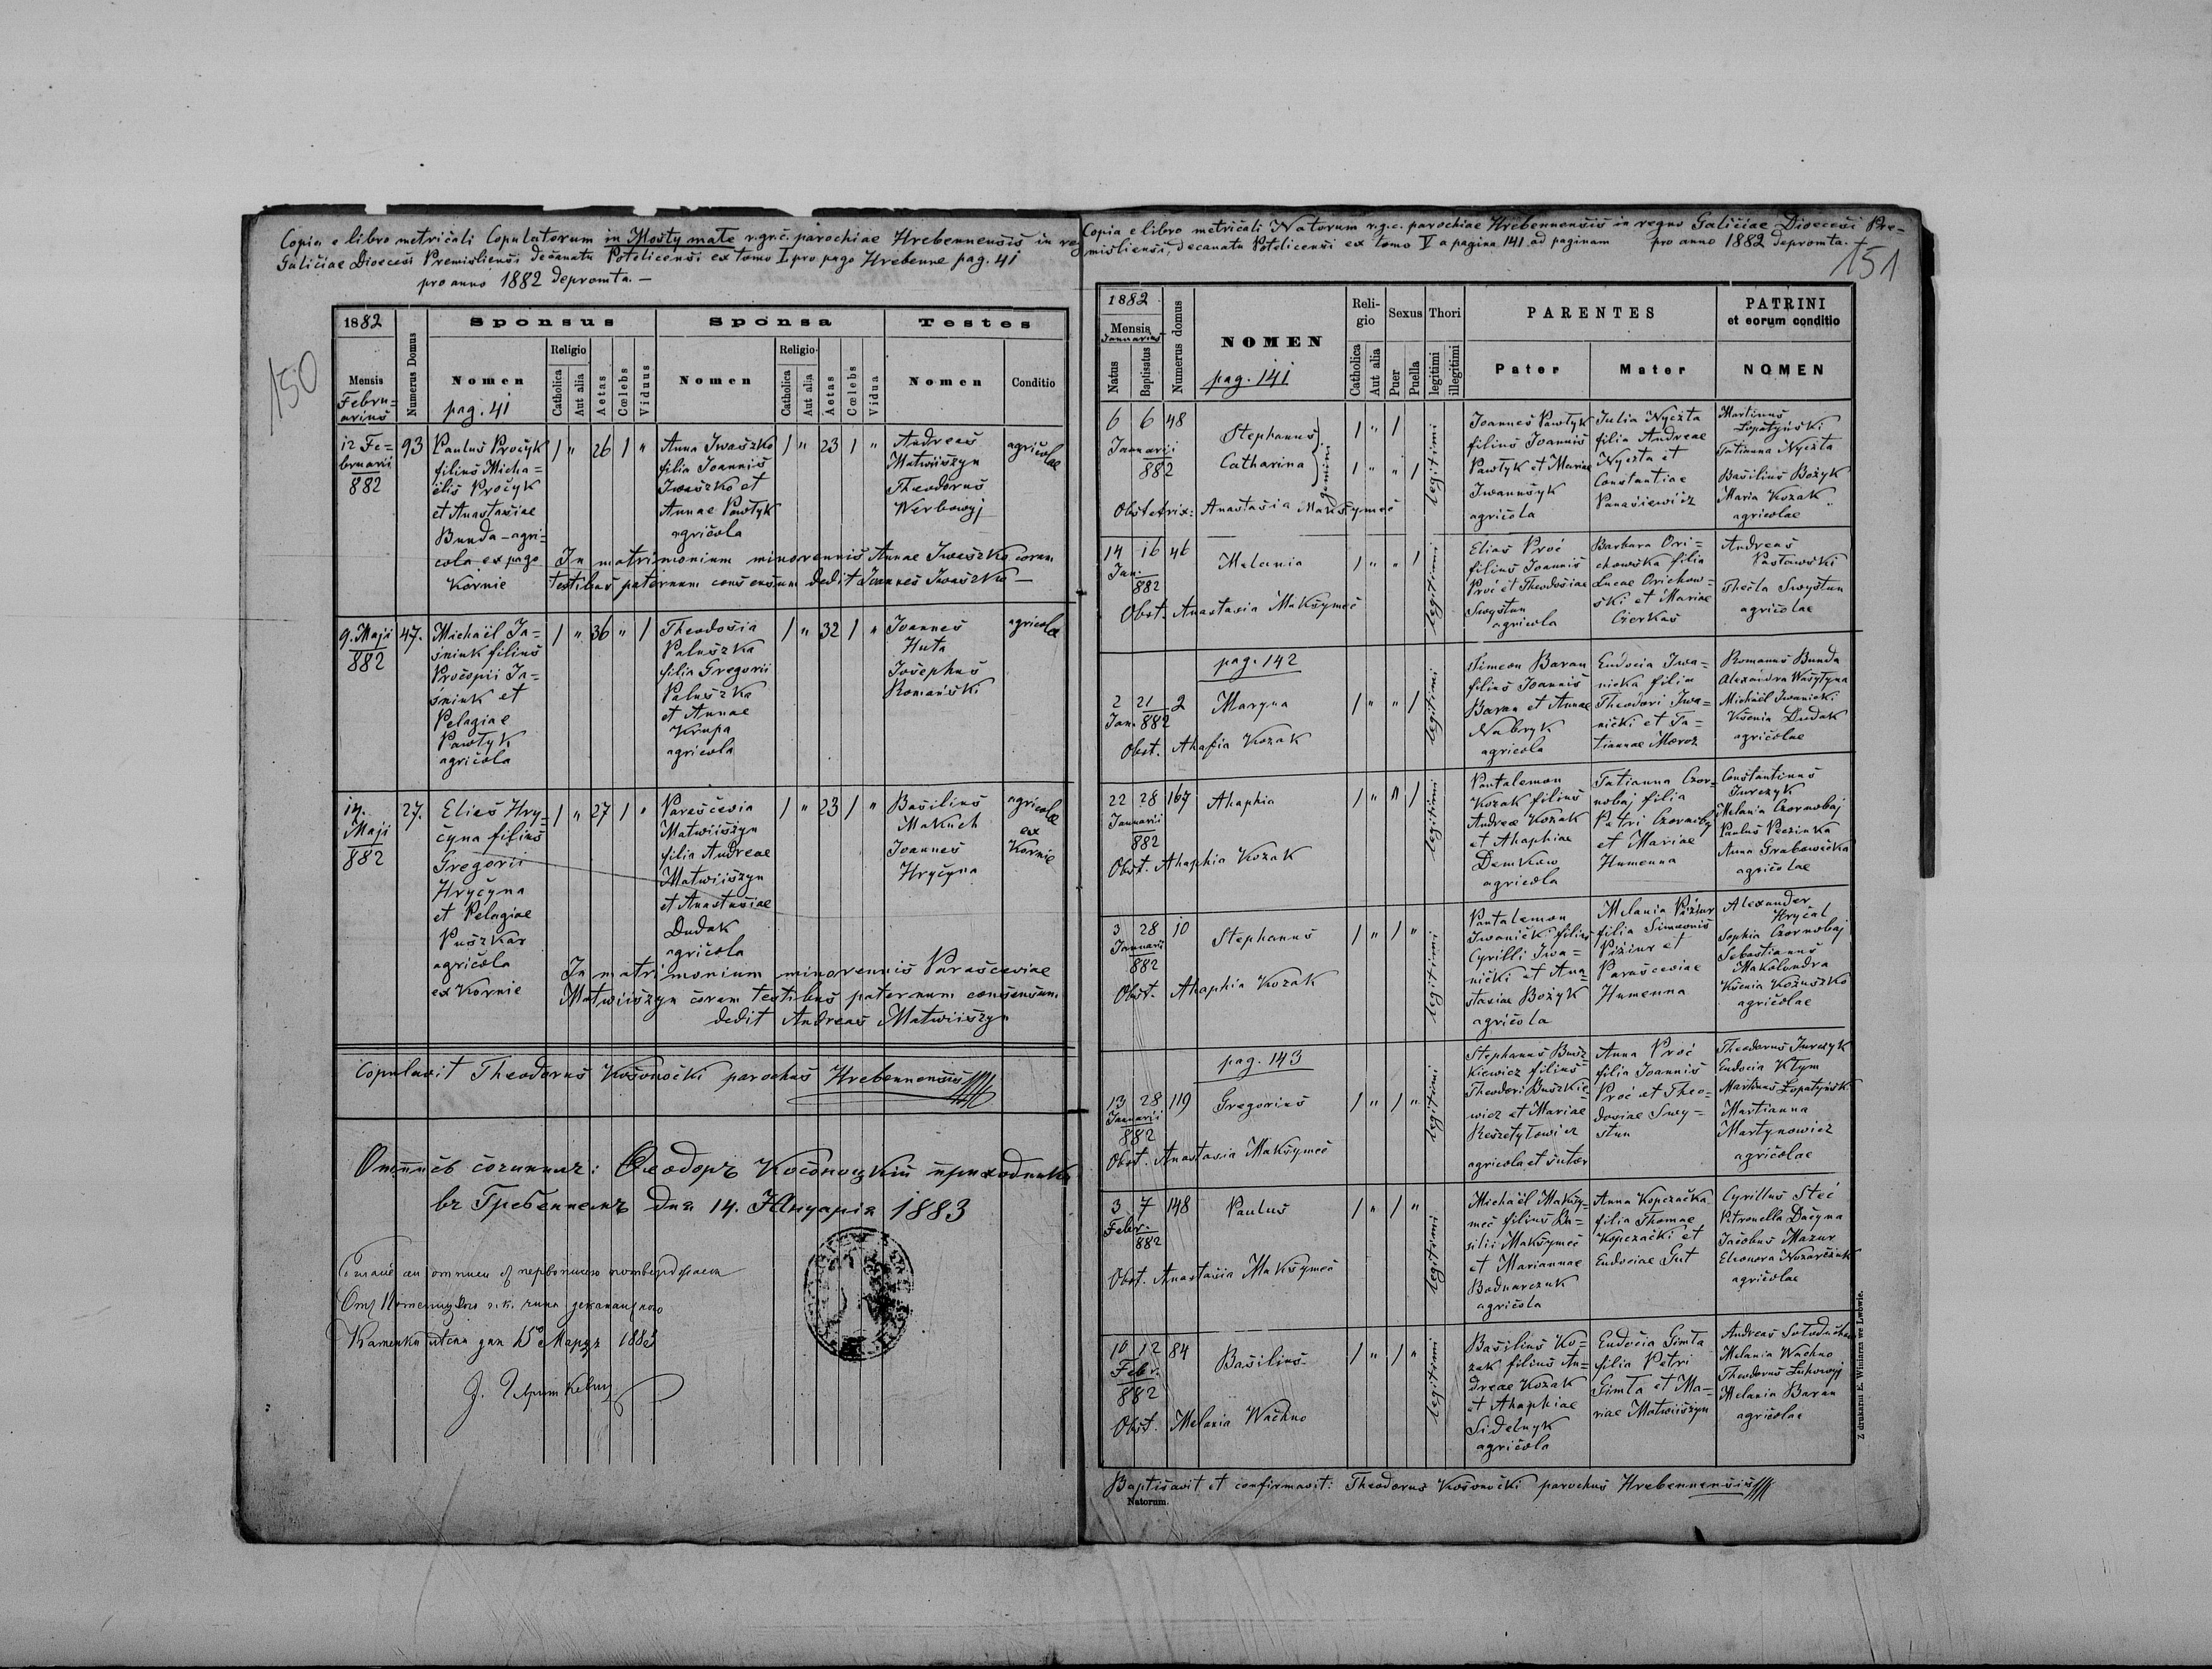 Copia e libro metričali Copulatorum in Mosty małe r.gr.č. parochiae Hrebennensis in reg
Galičiae Dioecesi Premisliensi Dečanatu Potelicensi ex tomo I. pro pago Hrebenne pag. 41
pro anno 1882 depromta. —
150
1882
Mensis
Febru=
arius
Numerus Domus
Sponsus
Nomen
pag. 41
Religio
Catholica
Aut alia
Aetas
Cœlebs
Viduus
Sponsa
Nomen
Religio
Catholica
Aut alia
Aetas
Cœlebs
Vidua
Testes
Nomen
Conditio
12 Fe=
bruarii
882
93
Paulus Pročyk
filius Micha=
ëlis Pročyk
et Anastasiae
Bunda - agri=
cola ex pago
Kornie
1 " 26 1 "
Anna Iwaszko
filia Joannis
Iwaszko et
Annae Pawłyk
agričola
1 " 23 1 "
Andreas
Matwiiszyn
Theodorus
Werbowyj
agričolae
In matrimonium minorennis Annae Iwaszko coram
testibus paternum consensum dedit Joannes Iwaszko —
9. Maji
882
47.
Michaël Ja=
śniuk filius
Pročopii Ja=
śniuk et
Pelagiae
Pawłyk
agričola
1 " 36 " 1
Theodosia
Paluszka
filia Gregorii
Paluszka
et Annae
Krupa
agricola
1 " 32 1 "
Joannes
Huta
Josephus
Romański
agricolae
17.
Maji
882
27.
Elias Hry=
čyna filius
Gregorii
Hryčyna
et Pelagiae
Puszkar
agričola
ex Kornie
1 " 27 1 "
Parasčevia
Matwiiszyn
filia Andreae
Matwiiszyn
et Anastasiae
Dudak
agričola
1 " 23 1 "
Basilius
Makuch
Joannes
Hryčyna
agricolae
ex
Kornie
In matrimonium minorennis Parasčeviae
Matwiiszyn čoram testibus paternum consensum
dedit Andreas Matwiiszyn
Copulavit Theodorus Košonočki parochus Hrebennensis
Ѳеодоръ Косоноцкій приходникъ
въ Гребенномъ дня 14. Януарія 1883
дня 15 Марта 1883
Copia e libro metričali Natorum r.g.c. parochiae Hrebennensis in regno Galičiae Dioecesi Pre=
misliensi, decanatu Potelicensi ex tomo V a pagina 141 ad paginam pro anno 1882 depromta. +
151
1882
Mensis
Januarius
Natus
Baptisatus
Numerus domus
NOMEN
pag. 141
Reli-
gio
Catholica
Aut alia
Sexus
Puer
Puella
Thori
legitimi
illegitimi
PARENTES
Pater
Mater
PATRINI
et eorum conditio
NOMEN
6 6 48
Januarii
882
Stephanus
Catharina
gemini
1 " 1
1 " " 1
legitimi
Joannes Pawłyk
filius Joannis
Pawłyk et Mariae
Iwanusyk
agričola
Julia Nyczta
filia Andreae
Nyczta et
Constantiae
Panasiewicz
Martinus
Łopatyński
Tatianna Nyczta
Basilius Božyk
Maria Kozak
agricolae
Obstetrix: Anastasia Maksymeč
14 16 46
Jan.
882
Melania
1 " " 1
legitimi
Elias Proć
filius Joannis
Proć et Theodosiae
Swystun
agricola
Barbara Ori=
chowska filia
Lucae Orichow=
ski et Mariae
Cierkas
Andreas
Pasławski
Thečla Swystun
agričolae
Obst. Anastasia Maksymeč
pag. 142
2 21 2
Jan. 882
Maryna
1 " " 1
legitimi
Simeon Baran
filius Joannis
Baran et Annae
Nabryk
agricola
Eudocia Iwa=
nicka filia
Theodori Iwa=
nički et Ta=
tiannae Moroz
Romanus Bunda
Alexandra Wasyłyna
Michaël Iwanički
Ksenia Dudak
agričolae
Obst. Ahafia Kozak
22 28 167
Januarii
882
Ahaphia
1 " " 1
legitimi
Pantalemon
Kozak filius
Andreae Kozak
et Ahaphiae
Demkow
agricola
Tatianna Czor=
nobaj filia
Petri Czornobaj
et Mariae
Humenna
Constantinus
Jurczyk
Melania Czornobaj
Paulus Peczinka
Anna Grabowička
agričolae
Obst. Ahaphia Kozak
3 28 10
Januarii
882
Stephanus
1 " 1 "
legitimi
Pantalemon
Iwanički filius
Cyrilli Iwa=
nički et Ana=
stasiae Božyk
agričola
Melania Pižiur
filia Simeonis
Pižiur et
Parasceviae
Humenna
Alexander
Hryčal
Sophia Czornobaj
Sebastianus
Makolondra
Ksenia Kožuszko
agričolae
Obst. Ahaphia Kozak
pag. 143
13 28 119
Januarii
882
Gregorius
1 " 1 "
legitimi
Stephanus Busz=
kiewicz filius
Theodori Buszkie=
wicz et Mariae
Reszetyłowicz
agricola et sutor
Anna Proć
filia Joannis
Proć et Theo=
dosiae Swy=
stun
Theodorus Jurczyk
Eudocia Kłym
Martinus Łopatyński
Martianna
Martynowicz
agričolae
Obst. Anastasia Maksymeč
3 7 148
Febr.
882
Paulus
1 " 1 "
legitimi
Michaël Maksy=
meč filius Ba=
silii Maksymeč
et Mariannae
Bodnarczuk
agričola
Anna Kopczačka
filia Thomae
Kopczački et
Eudociae Gut
Cyrillus Steć
Petronella Dačyna
Jačobus Mazur
Eleonora Nozarčzuk
agričolae
Obst. Anastasia Maksymeč
10 12 84
Febr.
882
Basilius
1 " 1 "
legitimi
Basilius Ko=
zak filius An=
dreae Kozak
et Ahaphiae
Sidelnyk
agričola
Eudočia Gimła
filia Petri
Gimła et Ma=
riae Matwiiszyn
Andreas
Melania Wachno
Theodorus Łuhowyj
Melania Baran
agričolae
Obst. Melania Wachno
Baptisavit et confirmavit: Theodorus Košonočki parochus Hrebennensis
Natorum.
Z drukarni E. Winiarza we Lwowie.